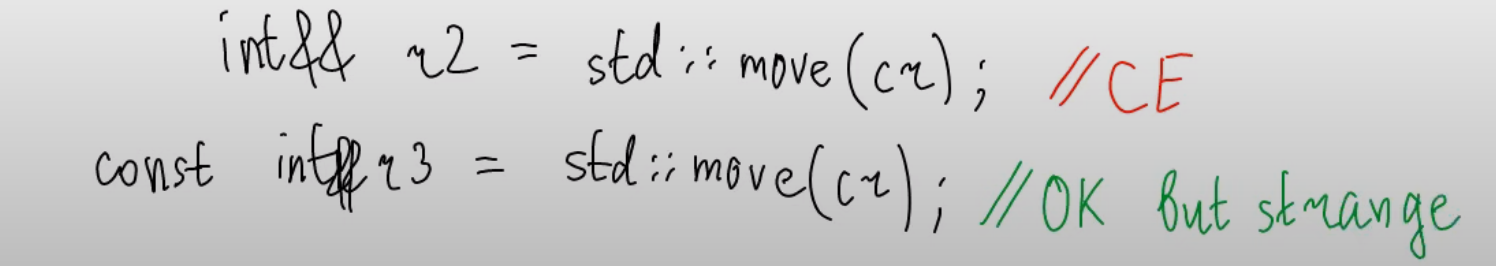 int&& r2 = std::move(cr); //CE
const int&& r3 = std::move(cr); //OK but strange